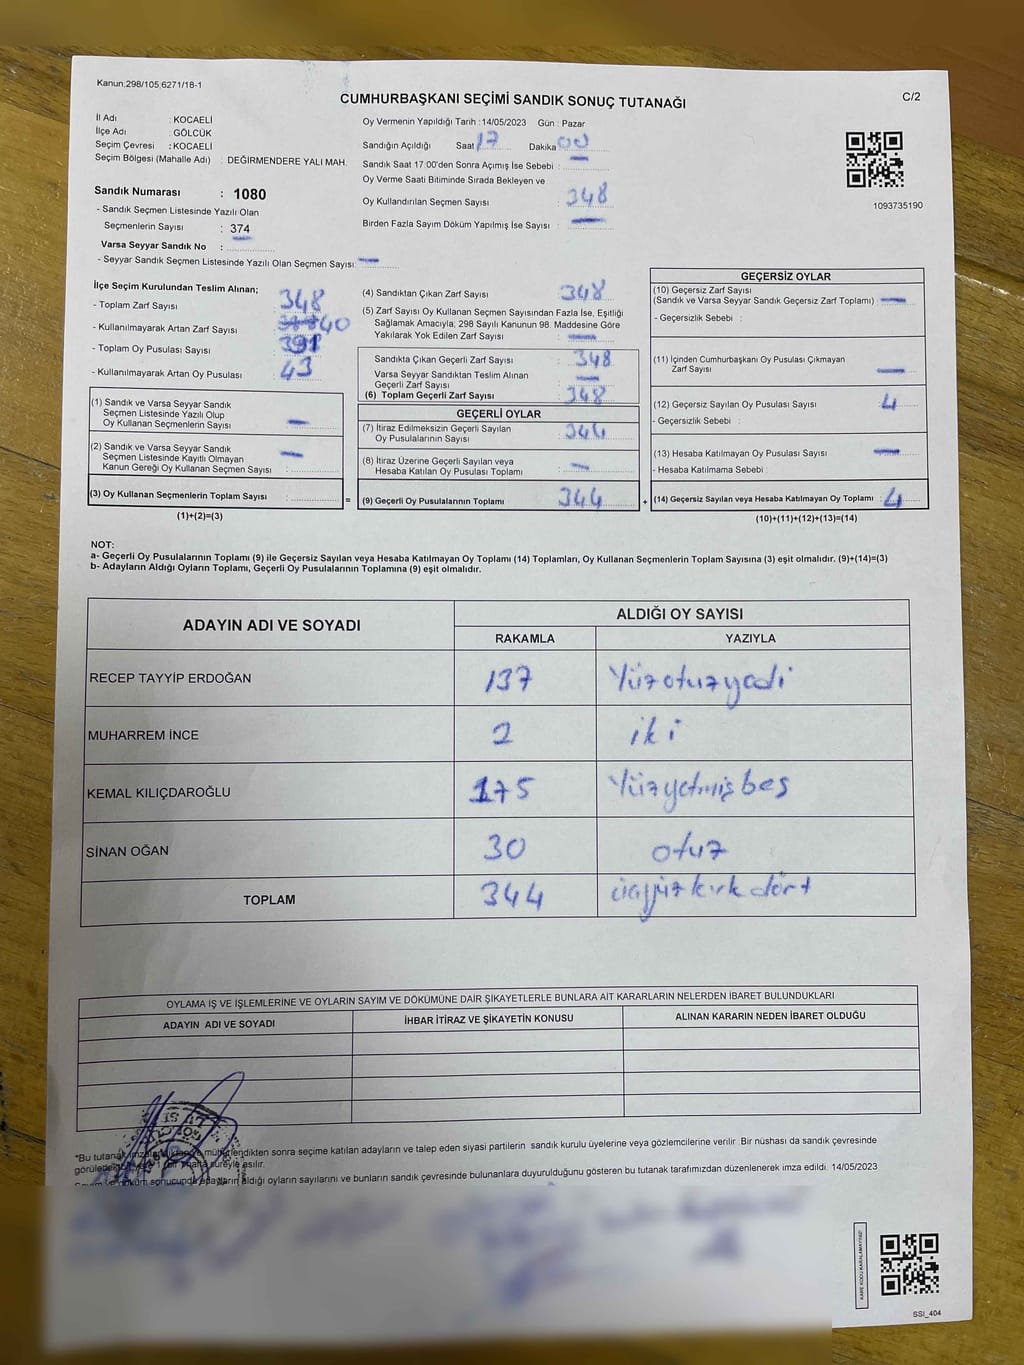 Kanun.298/105,6271/18-1
CUMHURBAŞKANI SEÇİMİ SANDIK SONUÇ TUTANAĞI
C/2
İl Adı : KOCAELİ
İlçe Adı : GÖLCÜK
Seçim Çevresi : KOCAELİ
Seçim Bölgesi (Mahalle Adı) : DEĞİRMENDERE YALI MAH.
Sandık Numarası : 1080
- Sandık Seçmen Listesinde Yazılı Olan
Seçmenlerin Sayısı : 374
Varsa Seyyar Sandık No :
- Seyyar Sandık Seçmen Listesinde Yazılı Olan Seçmen Sayısı: —
Oy Vermenin Yapıldığı Tarih : 14/05/2023 Gün : Pazar
Sandığın Açıldığı Saat 17 Dakika 00
Sandık Saat 17:00'den Sonra Açımış İse Sebebi : —
Oy Verme Saati Bitiminde Sırada Bekleyen ve
Oy Kullandırılan Seçmen Sayısı : 348
Birden Fazla Sayım Döküm Yapılmış İse Sayısı : —
1093735190
İlçe Seçim Kurulundan Teslim Alınan;
- Toplam Zarf Sayısı : 348
- Kullanılmayarak Artan Zarf Sayısı : 40
- Toplam Oy Pusulası Sayısı : 391
- Kullanılmayarak Artan Oy Pusulası : 43
(1) Sandık ve Varsa Seyyar Sandık
Seçmen Listesinde Yazılı Olup
Oy Kullanan Seçmenlerin Sayısı : —
(2) Sandık ve Varsa Seyyar Sandık
Seçmen Listesinde Kayıtlı Olmayan
Kanun Gereği Oy Kullanan Seçmen Sayısı : —
(3) Oy Kullanan Seçmenlerin Toplam Sayısı : =
(1)+(2)=(3)
(4) Sandıktan Çıkan Zarf Sayısı : 348
(5) Zarf Sayısı Oy Kullanan Seçmen Sayısından Fazla İse, Eşitliği
Sağlamak Amacıyla; 298 Sayılı Kanunun 98. Maddesine Göre
Yakılarak Yok Edilen Zarf Sayısı : —
Sandıkta Çıkan Geçerli Zarf Sayısı : 348
Varsa Seyyar Sandıktan Teslim Alınan
Geçerli Zarf Sayısı : —
(6) Toplam Geçerli Zarf Sayısı : 348
GEÇERLİ OYLAR
(7) İtiraz Edilmeksizin Geçerli Sayılan
Oy Pusulalarının Sayısı : 344
(8) İtiraz Üzerine Geçerli Sayılan veya
Hesaba Katılan Oy Pusulası Toplamı : —
(9) Geçerli Oy Pusulalarının Toplamı : 344 +
GEÇERSİZ OYLAR
(10) Geçersiz Zarf Sayısı
(Sandık ve Varsa Seyyar Sandık Geçersiz Zarf Toplamı) : —
- Geçersizlik Sebebi :
(11) İçinden Cumhurbaşkanı Oy Pusulası Çıkmayan
Zarf Sayısı : —
(12) Geçersiz Sayılan Oy Pusulası Sayısı : 4
- Geçersizlik Sebebi :
(13) Hesaba Katılmayan Oy Pusulası Sayısı : —
- Hesaba Katılmama Sebebi :
(14) Geçersiz Sayılan veya Hesaba Katılmayan Oy Toplamı : 4
(10)+(11)+(12)+(13)=(14)
NOT:
a- Geçerli Oy Pusulalarının Toplamı (9) ile Geçersiz Sayılan veya Hesaba Katılmayan Oy Toplamı (14) Toplamları, Oy Kullanan Seçmenlerin Toplam Sayısına (3) eşit olmalıdır. (9)+(14)=(3)
b- Adayların Aldığı Oyların Toplamı, Geçerli Oy Pusulalarının Toplamına (9) eşit olmalıdır.
ADAYIN ADI VE SOYADI
ALDIĞI OY SAYISI
RAKAMLA YAZIYLA
RECEP TAYYİP ERDOĞAN 137 Yüzotuzyedi
MUHARREM İNCE 2 iki
KEMAL KILIÇDAROĞLU 175 Yüzyetmişbeş
SİNAN OĞAN 30 otuz
TOPLAM 344 üçyüzkırkdört
OYLAMA İŞ VE İŞLEMLERİNE VE OYLARIN SAYIM VE DÖKÜMÜNE DAİR ŞİKAYETLERLE BUNLARA AİT KARARLARIN NELERDEN İBARET BULUNDUKLARI
ADAYIN ADI VE SOYADI İHBAR İTİRAZ VE ŞİKAYETİN KONUSU ALINAN KARARIN NEDEN İBARET OLDUĞU
*Bu tutanak mühürlendikten sonra seçime katılan adayların ve talep eden siyasi partilerin sandık kurulu üyelerine veya gözlemcilerine verilir. Bir nüshası da sandık çevresinde
hafta süreyle asılır.
Sayım ve döküm sonucunda adayların aldığı oyların sayılarını ve bunların sandık çevresinde bulunanlara duyurulduğunu gösteren bu tutanak tarafımızdan düzenlenerek imza edildi. 14/05/2023
KARE KODU KARALAMAYINIZ!
SSI_404